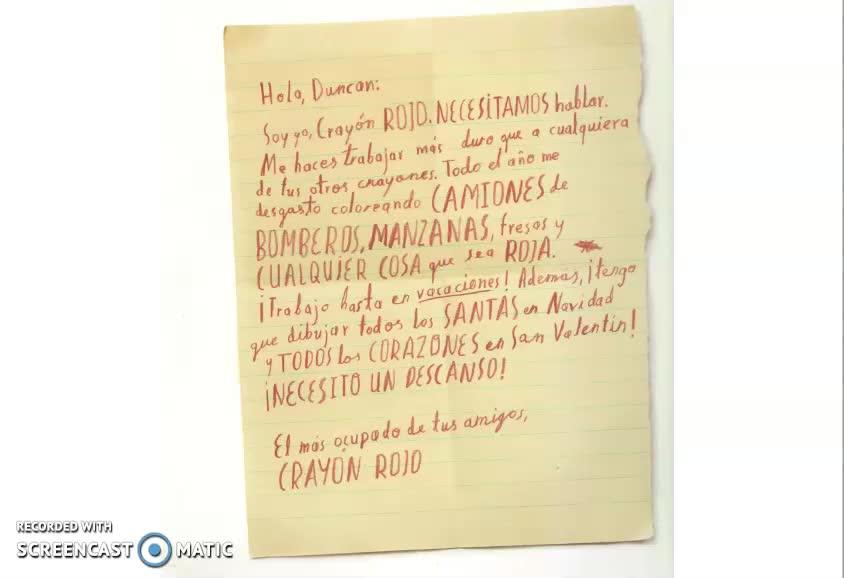 Hola, Duncan:
Soy yo, Crayón ROJO. NECESITAMOS hablar.
Me haces trabajar más duro que a cualquiera
de tus otros crayones. Todo el año me
desgasto coloreando CAMIONES de
BOMBEROS, MANZANAS, fresas y
CUALQUIER COSA que sea ROJA.
¡Trabajo hasta en vacaciones! Además, ¡tengo
que dibujar todos los SANTAS en Navidad
y TODOS los CORAZONES en San Valentín!
¡NECESITO UN DESCANSO!
El más ocupado de tus amigos,
CRAYÓN ROJO
RECORDED WITH
SCREENCAST MATIC